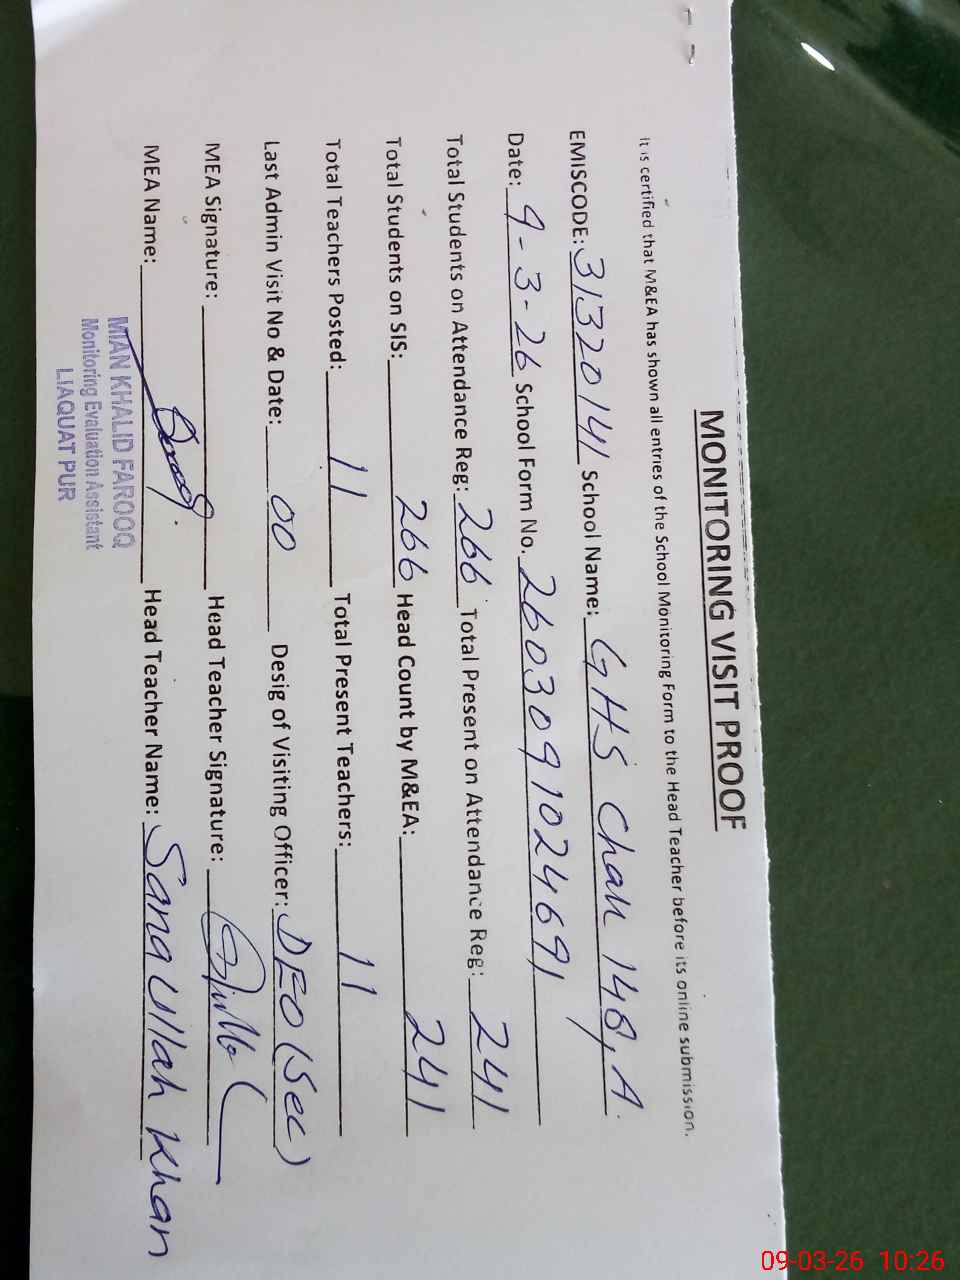 MONITORING VISIT PROOF
It is certified that M&EA has shown all entries of the School Monitoring Form to the Head Teacher before its online submission.
EMISCODE: 31320141 School Name: GHS Chak 148, A.
Date: 9-3-26 School Form No. 2603091024691
Total Students on Attendance Reg: 266 Total Present on Attendance Reg: 241
Total Students on SIS: 266 Head Count by M&EA: 241
Total Teachers Posted: 11 Total Present Teachers: 11
Last Admin Visit No & Date: 00 Desig of Visiting Officer: DEO (Sec)
MEA Signature: Head Teacher Signature:
MEA Name: Head Teacher Name: Sana Ullah Khan
MIAN KHALID FAROOQ
Monitoring Evaluation Assistant
LIAQUAT PUR
09-03-26 10:26